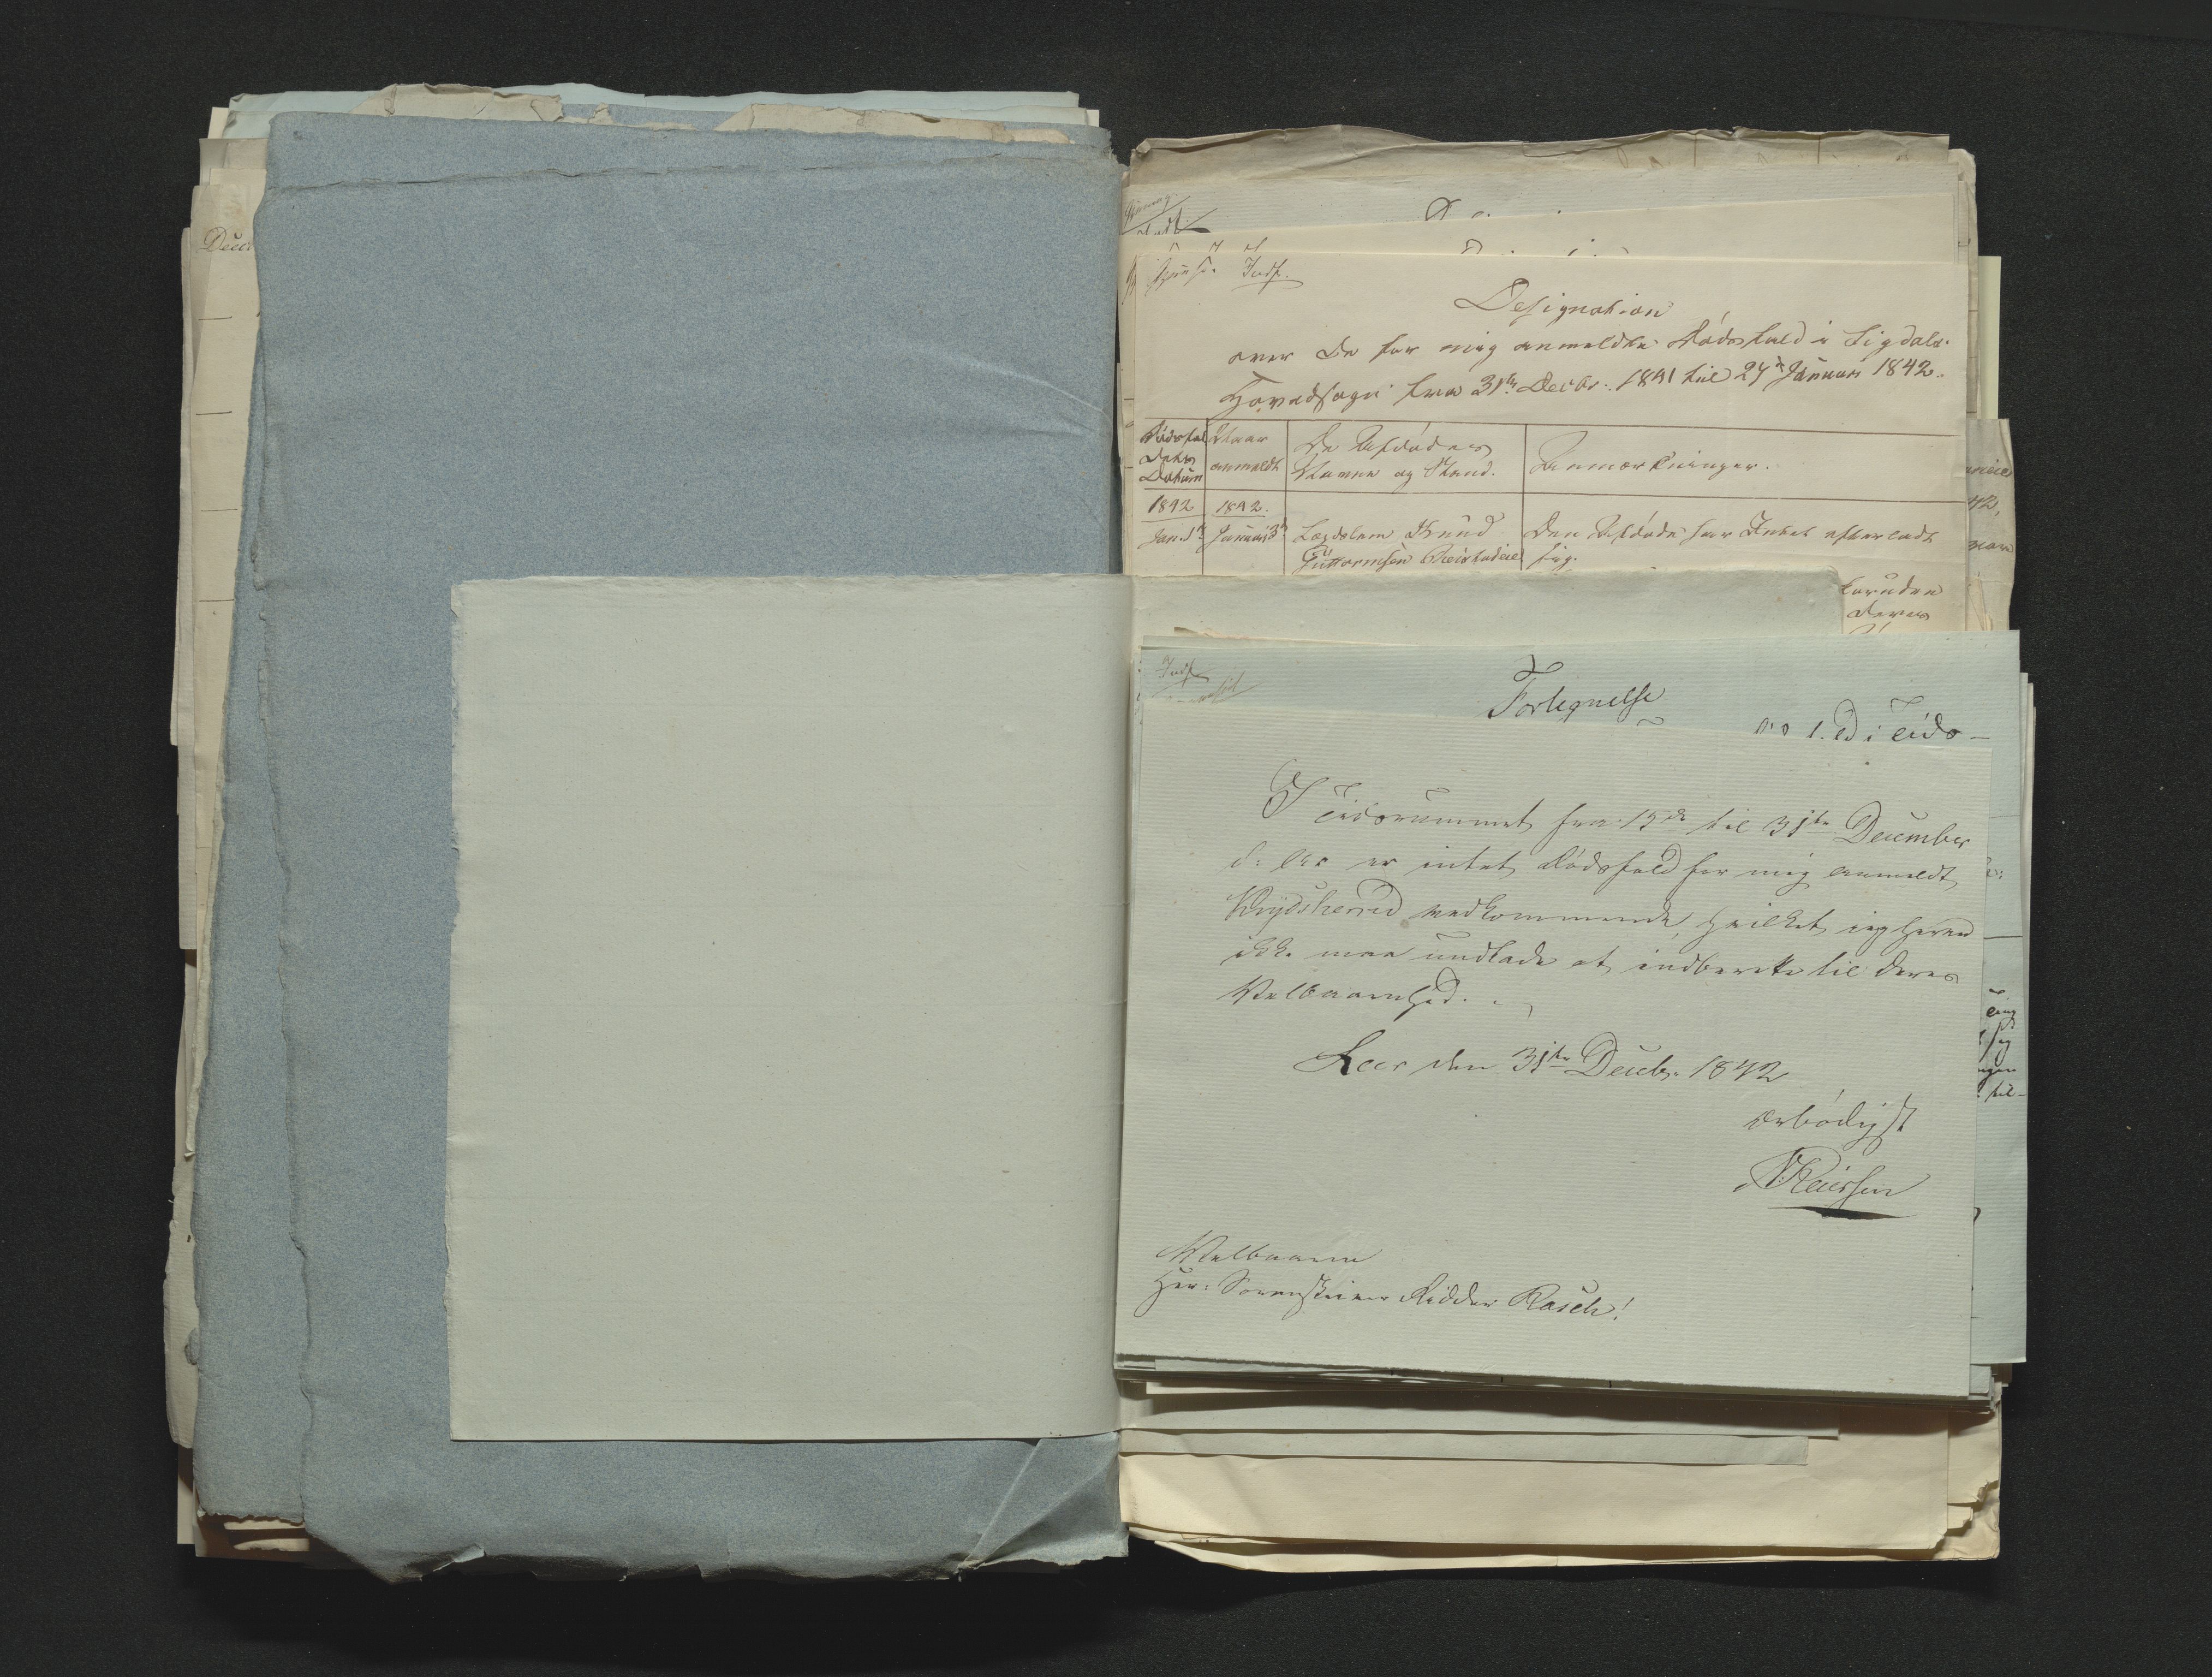 Designation
over de for mig anmeldte Dødsfald i Sigdals
Hovedsogn fra 31te Decbr. 1841 til 27de Januari 1842.
Dødsfal
dets
Datum
Naar
anmeldt
De Afdødes
Navne og Stand.
Anmærkninger.
1842
1842.
Jan. 1te
Januari 3de
Lægdslem Knud
Guttormsen
Den Afdøde har Intet efterladt
sig.
foruden
deres
Forteg­nelse
Tids-
I Tidsrummet fra 15de til 31te December
d: A: er intet Dødsfald for mig anmeldt
Krydsherred vedkommende, hvilket jeg herved
ikke maa undlade at indberette til Deres
Velbaarenhed.
den 31te Decbr. 1842
ærbødigst
Reiersen
Velbaarne
Herr: Sorenskriver Ridder Rasch!